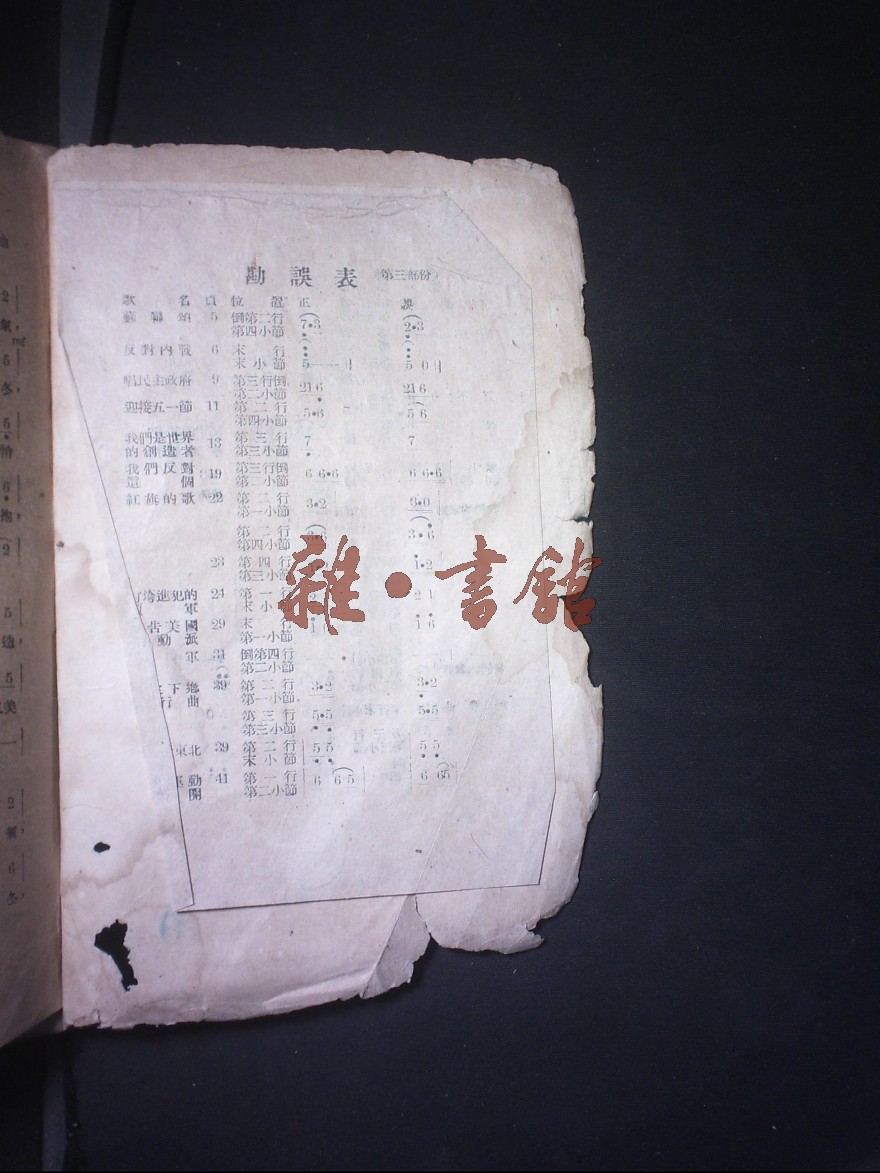 勘誤表 第三部份
歌名 頁 位置 正 誤
蘇聯頌 5 倒第二行 7•3 2•3
第四小節
反對內戰 6 末行 5—— 5 0
末小節
唱民主政府 9 第三行倒 21 6 21 6
第二小節
迎接五一節 11 第二行 5•6 5 6
第四小節
我們是世界 13 第三行 7 7
的創造者 第三小節
我們反對 19 第三行倒 6 6•6 6 6•6
這個 第二小節
紅旗的歌 22 第二行 3•2 3•0
第一小節
第二行 3•6
第四小節
23 第四行 1•2
第三小節
進犯的 24 第一行 2 1
軍 末小
告美國 29 末行 1 6
動派 第一小節
軍 31 倒第四行
第二小節
下鄉 39 第二行 3•2 3•2
行曲 第一小節
第三行 5•5 5•5
第三小節
東北 39 第二行 5 5 5 5
末小節
動 41 第一行 6 6 5 6 65
開 第二小節
雜•書館
2
氣,
5
冬,
5
恰
6
抱
2
5
造
5
美
2
氣,
6
冬,